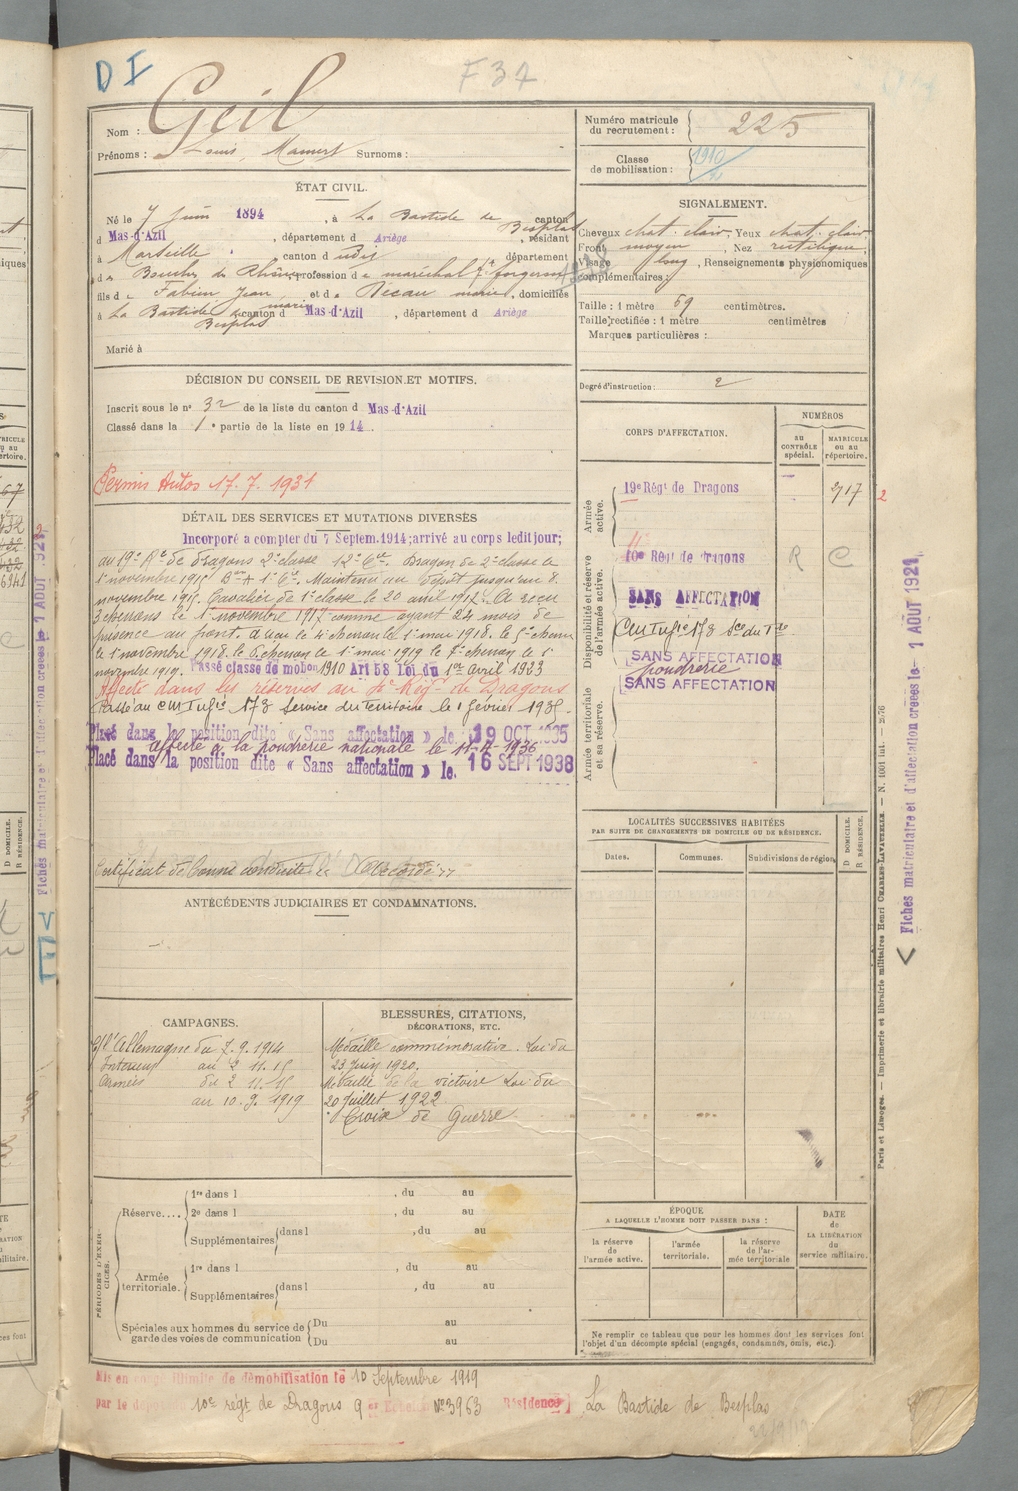 D I
F 37
Nom : Geil
Prénoms : Louis, Mamert Surnoms :
Numéro matricule du recrutement : 225
Classe de mobilisation : 1910
ÉTAT CIVIL.
Né le 7 Juin 1894, à La Bastide de Besplas canton
d Mas-d'Azil, département d Ariège, résidant
à Marseille, canton d udis département
d es Bouches du Rhône, profession de maréchal ft forgeron
fils de Fabien Jean marie et de Pécau marie, domiciliés
à La Bastide de Besplas canton d Mas-d'Azil, département d Ariège
Marié à
SIGNALEMENT.
Cheveux chat. clair, Yeux chat. clair
Front moyen, Nez rectiligne,
Visage long, Renseignements physionomiques
complémentaires :
Taille : 1 mètre 69 centimètres.
Taille rectifiée : 1 mètre centimètres
Marques particulières :
Degré d'instruction : 2
DÉCISION DU CONSEIL DE REVISION ET MOTIFS.
Inscrit sous le n° 32 de la liste du canton d Mas-d'Azil
Classé dans la 1e partie de la liste en 1914.
Permis Autos 17.7.1931
DÉTAIL DES SERVICES ET MUTATIONS DIVERSES
Incorporé a compter du 7 Septem. 1914; arrivé au corps ledit jour;
au 19e Rt de dragons 2e classe 12e Con. Dragon de 2e classe le
1 novembre 1915. Maintenu au Dépôt jusqu'au 8
novembre 1915. Cavalier de 1e classe le 20 avril 1917. A reçu
3 chevrons le 1 novembre 1917 comme ayant 24 mois de
présence au front. A reçu le 4e chevron le 1 mai 1918. le 5e chevron
le 1 novembre 1918. le 6 chevron le 1 mai 1919 le 7e chevron le 1
novembre 1919. Passé classe de mobon 1910 Art 58 Loi du 1er avril 1933
Affecté dans les réserves au Régt de Dragons
Passé au CM Infie 173 Service du Territoire le 1 février 1935.
Placé dans la position dite « Sans affectation » le 19 OCT. 1935
affecté à la poudrerie nationale le 11-4-1936
Placé dans la position dite « Sans affectation » le 16 SEPT 1938
Certificat de bonne conduite : Accordé
CORPS D'AFFECTATION.
NUMÉROS
AU CONTRÔLE spécial.
MATRICULE OU AU répertoire.
Armée active.
19e Régt de Dragons 2717 2
Disponibilité et réserve de l'armée active.
10e Régt de Dragons R C
SANS AFFECTATION
CM Infie 173 Sce du Tre
SANS AFFECTATION
poudrerie
SANS AFFECTATION
Armée territoriale et sa réserve.
LOCALITÉS SUCCESSIVES HABITÉES
PAR SUITE DE CHANGEMENTS DE DOMICILE OU DE RÉSIDENCE.
Dates. Communes. Subdivisions de région. D DOMICILE. R RÉSIDENCE.
ANTÉCÉDENTS JUDICIAIRES ET CONDAMNATIONS.
CAMPAGNES.
C/ l'Allemagne du 7.9.1914
Intérieur au 2 11.15
Armées du 2 11.15
au 10.9.1919
BLESSURES, CITATIONS, DÉCORATIONS, ETC.
Médaille commémorative. Loi du
23 Juin 1920.
Médaille de la victoire Loi du
20 Juillet 1922
Croix de Guerre
PÉRIODES D'EXERCICES.
Réserve.... 1re dans l , du au
2e dans l , du au
Supplémentaires dans l , du au
Armée territoriale. 1re dans l , du au
Supplémentaires dans l , du au
Spéciales aux hommes du service de garde des voies de communication
Du au
Du au
ÉPOQUE
A LAQUELLE L'HOMME DOIT PASSER DANS :
la réserve de l'armée active. l'armée territoriale. la réserve de l'armée territoriale
DATE de LA LIBÉRATION du service militaire.
Ne remplir ce tableau que pour les hommes dont les services font
l'objet d'un décompte spécial (engagés, condamnés, omis, etc.).
Mis en congé illimité de démobilisation le 10 Septembre 1919
par le dépôt du 10e régt de Dragons 9 er Echelon No 3963 Résidence La Bastide de Besplas
Paris et Limoges. — Imprimerie et librairie militaires Henri CHARLES-LAVAUZELLE. — N. 1001 int. — 2/76
Fiches matriculaire et d'affectation créées le 1 AOUT 1921